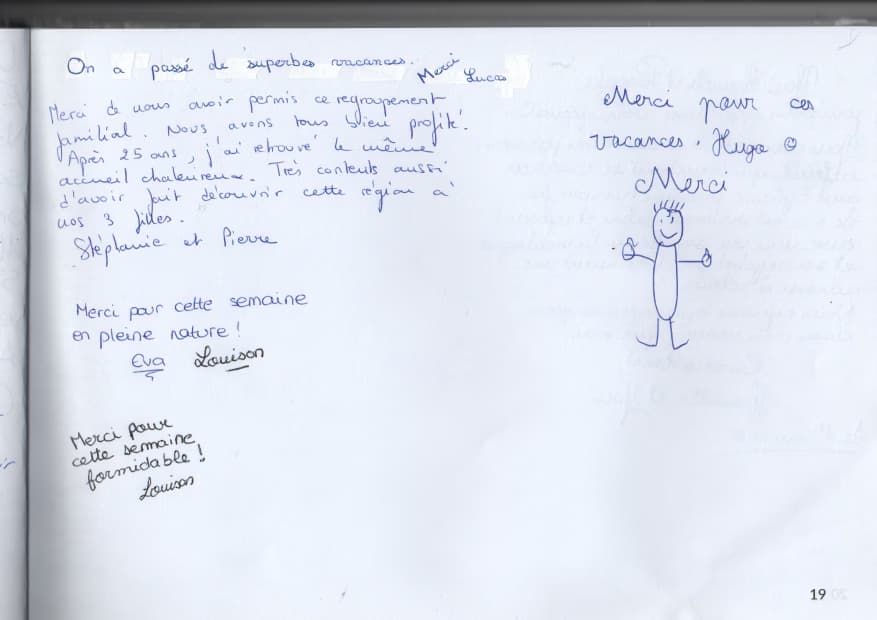 On a passé de superbes vacances.
Merci Lucas
Merci de nous avoir permis ce regroupement
familial. Nous avons tous bien profité.
Après 25 ans, j'ai retrouvé le même
accueil chaleureux. Très contents aussi
d'avoir fait découvrir cette région à
nos 3 filles.
Stéphanie et Pierre
Merci pour cette semaine
en pleine nature !
Eva Louison
Merci pour
cette semaine
formidable !
Louison
Merci pour ces
vacances. Hugo ☺
Merci
19